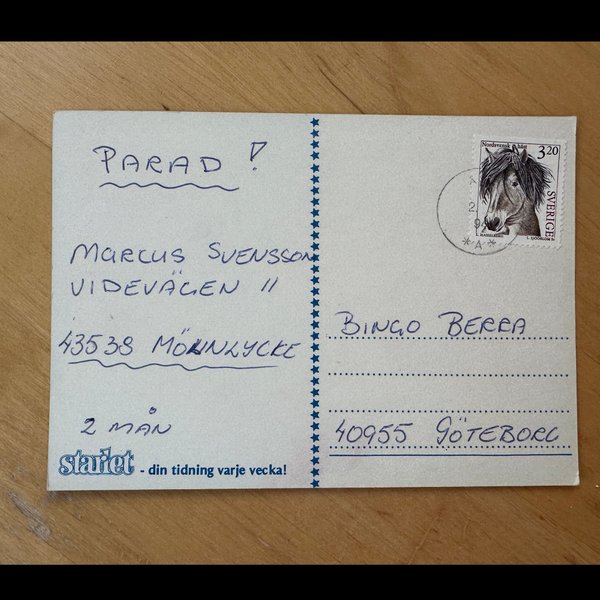 PARAD!
MARCUS SVENSSON
VIDEVÄGEN 11
43538 MÖLNLYCKE
2 MÅN
starlet - din tidning varje vecka!
Nordsvensk häst
3.20
SVERIGE
*A*
BINGO BERRA
40955 GÖTEBORG